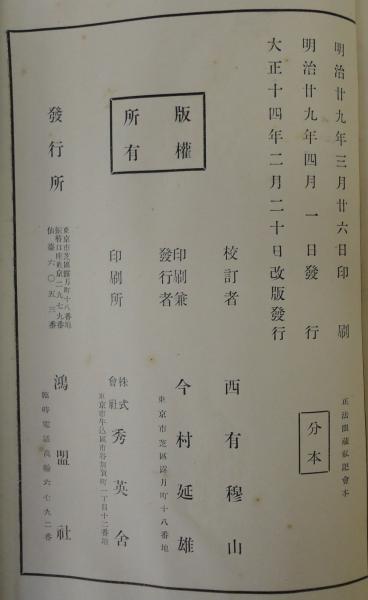 明治廿九年三月廿六日印刷
明治廿九年四月一日發行
大正十四年二月二十日改版發行
正法眼藏私記會本
分本
版權
所有
校訂者 西有穆山
印刷兼
發行者 今村延雄
東京市芝區露月町十八番地
印刷所 株式
會社 秀英舍
東京市牛込區市谷加賀町一丁目十二番地
發行所 鴻盟社
東京市芝區露月町十八番地
振替口座東京二九七九番
仙臺六〇五三番